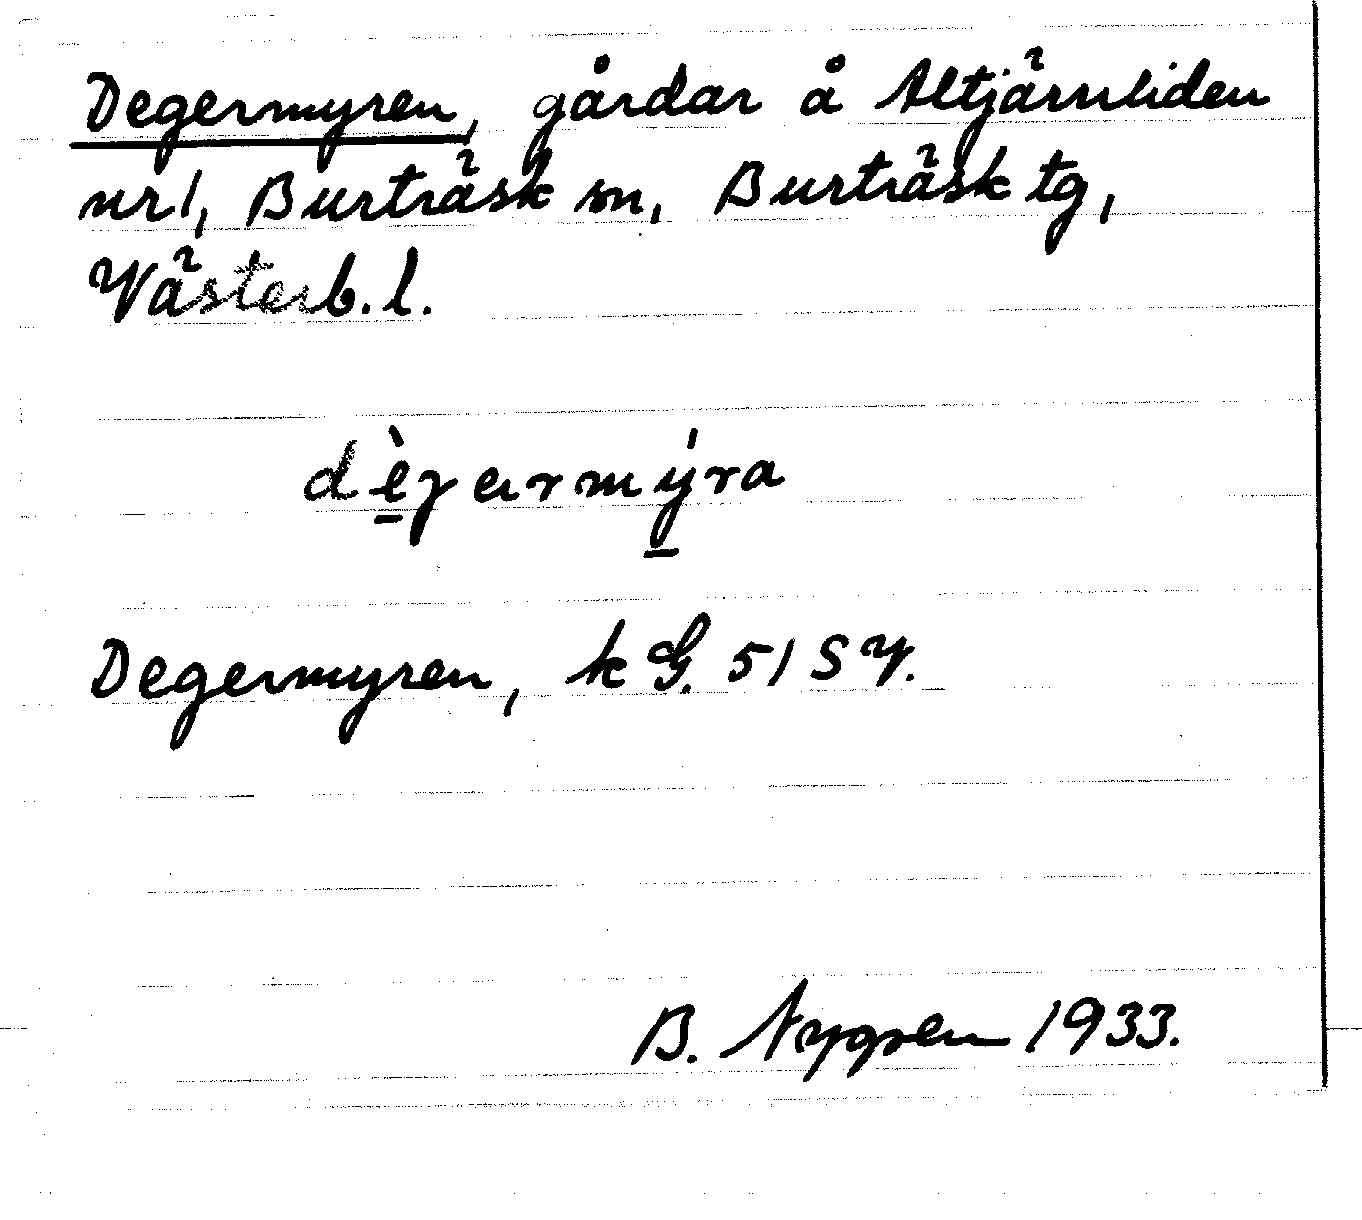 Degermyren, gårdar å Altjärnliden
nr 1, Burträsk sn, Burträsk tg,
Västerb. l.
dègarmýra
Degermyren, k G. 51 SV.
B. Nygren 1933.